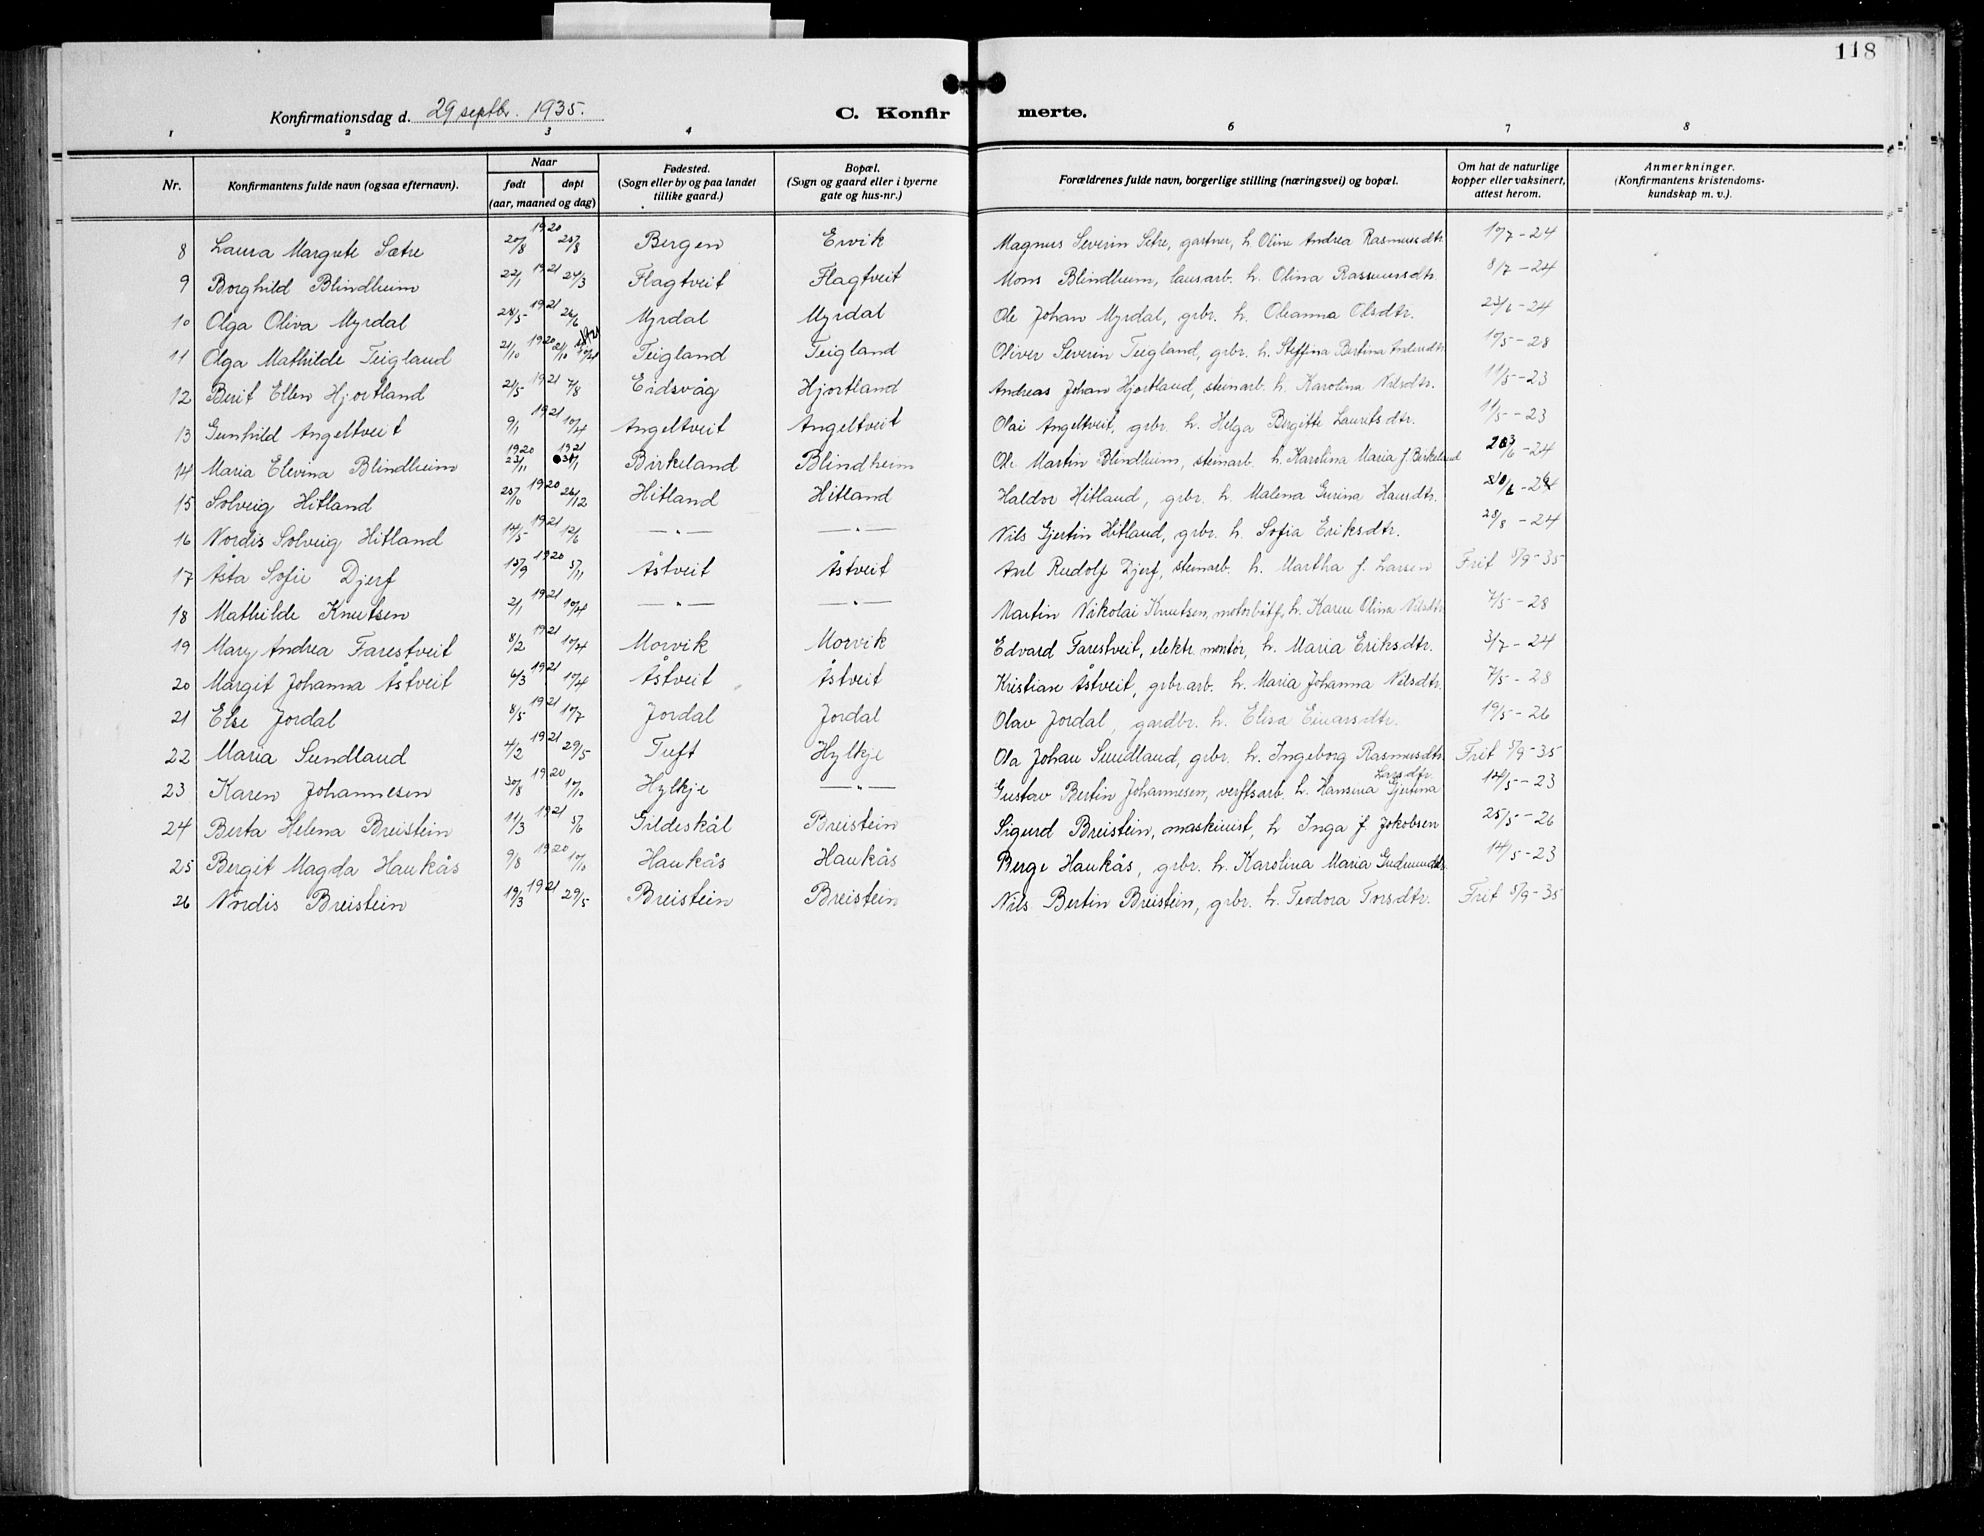 118
Konfirmationsdag d. 29 septbr. 1935. C. Konfirmerte.
1 2 3 4 5 6 7 8
Nr. Konfirmantens fulde navn (ogsaa efternavn). Naar født døpt (aar, maaned og dag) Fødested. (Sogn eller by og paa landet tillike gaard.) Bopæl. (Sogn og gaard eller i byerne gate og hus-nr.) Forældrenes fulde navn, borgerlige stilling (næringsvei) og bopæl. Om hat de naturlige kopper eller vaksinert, attest herom. Anmerkninger. (Konfirmantens kristendomskundskap m. v.).
8 Laura Margrete Sætre 20/8 1920 Bergen Ervik Magnus Severin Setre, gartner, h. Oline Andrea Rasmusdtr. 10/7 - 24
9 Borghild Blindheim 22/1 1921 24/3 Flagtveit Flagtveit Mons Blindheim, lausarb. h. Olina Rasmusdtr. 8/7 - 24
10 Olga Oliva Myrdal 28/5 1921 26/6 Myrdal Myrdal Ole Johan Myrdal, grbr. h. Oleanna Olsdtr. 23/6 - 24
11 Olga Mathilde Teigland 21/10 1920 Teigland Teigland Oliver Severin Teigland, grbr. h. Steffina Bertina Andersdtr. 10/5 - 28
12 Berit Ellen Hjortland 21/5 1921 7/8 Eidsvåg Hjortland Andreas Johan Hjortland, steinarb. h. Karolina Nilsdtr. 11/5 - 23
13 Gunhild Angeltveit 9/1 1921 10/4 Angeltveit Angeltveit Olai Angeltveit, grbr. h. Helga Birgitte Lauritsdtr. 11/5 - 23
14 Maria Elevina Blindheim 1920 23/11 1921 Birkeland Blindheim Ole Martin Blindheim, steinarb. h. Karolina Maria f. Birkeland 23/6 - 24
15 Solveig Hitland 20/10 1920 26/12 Hitland Hitland Haldor Hitland, grbr. h. Malena Gurina Hansdtr.
16 Nordis Solveig Hitland 14/5 1921 12/6 — " — — " — Nils Gjertin Hitland, grbr. h. Sofia Eriksdtr. 28/8 - 24
17 Åsta Sofie Djerf 15/9 1920 5/11 Åstveit Åstveit Karl Rudolf Djerf, steinarb. h. Martha f. Larsen Frit 5/9 - 35
18 Mathilde Knutsen 2/1 1921 10/4 — " — — " — Martin Nikolai Knutsen, h. Karen Olina Nilsdtr. 7/5 - 28
19 Mary Andrea Farestveit 8/2 1921 10/4 Morvik Morvik Edvard Farestveit, elektr. montør, h. Maria Eriksdtr. 3/7 - 24
20 Margit Johanna Åstveit 6/3 1921 10/4 Åstveit Åstveit Kristian Åstveit, grbr.arb. h. Maria Johanna Nilsdtr. 7/5 - 28
21 Else Jordal 8/5 1921 10/7 Jordal Jordal Olav Jordal, gardbr. h. Elisa Einarsdtr. 19/5 - 26
22 Maria Sundland 4/2 1921 29/5 Tuft Hylkje Ola Johan Sundland, grbr. h. Ingeborg Rasmusdtr. Frit 5/9 - 35
23 Karen Johannesen 30/8 1920 10/10 Hylkje — " — Gustav Bertin Johannesen, verftsarb. h. Hansina Gjertina Larsdtr. 14/5 - 23
24 Berta Helena Breistein 11/3 1921 5/6 Gildeskål Breistein Sigurd Breistein, maskinist, h. Inga f. Jakobsen 25/5 - 26
25 Bergit Magda Haukås 9/8 1920 10/10 Haukås Haukås Berge Haukås, grbr. h. Karolina Maria Gudmundsdtr. 14/5 - 23
26 Nordis Breistein 19/3 1921 29/5 Breistein Breistein Nils Bertin Breistein, grbr. h. Teodora Torsdtr. Frit 5/9 - 35